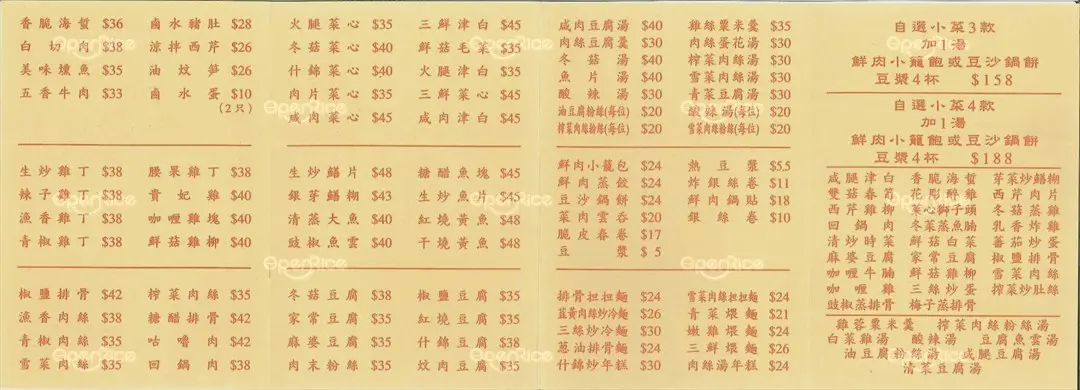 香脆海蜇 $36
白切肉 $38
美味燻魚 $35
五香牛肉 $33
鹵水豬肚 $28
涼拌西芹 $26
油炆笋 $26
鹵水蛋 $10
(2只)
火腿菜心 $35
冬菇菜心 $40
什錦菜心 $40
肉片菜心 $35
咸肉菜心 $45
三鮮津白 $45
鮮菇毛菜 $35
火腿津白 $35
三鮮菜心 $45
咸肉津白 $45
生炒雞丁 $38
辣子雞丁 $38
漁香雞丁 $38
青椒雞丁 $38
腰果雞丁 $38
貴妃雞 $40
咖喱雞塊 $40
鮮菇雞柳 $40
生炒鱔片 $48
銀芽鱔糊 $43
清蒸大魚 $40
豉椒魚雲 $40
糖醋魚塊 $45
生炒魚片 $45
紅燒黃魚 $48
干燒黃魚 $48
椒鹽排骨 $42
漁香肉絲 $38
青椒肉絲 $35
雪菜肉絲 $35
榨菜肉絲 $35
糖醋排骨 $42
咕嚕肉 $42
回鍋肉 $38
冬菇豆腐 $38
家常豆腐 $35
麻婆豆腐 $35
肉末粉絲 $35
椒鹽豆腐 $35
紅燒豆腐 $35
什錦豆腐 $38
炆肉豆腐 $35
咸肉豆腐湯 $40
肉絲豆腐羹 $30
冬菇湯 $40
魚片湯 $40
酸辣湯 $30
油豆腐粉絲(每位) $20
榨菜肉絲粉絲(每位) $20
雞絲粟米羹 $35
肉絲蛋花湯 $30
榨菜肉絲湯 $30
雪菜肉絲湯 $30
青菜豆腐湯 $30
酸辣湯(每位) $20
雪菜肉絲粉絲(每位) $20
鮮肉小籠包 $24
鮮肉蒸餃 $24
豆沙鍋餅 $24
菜肉雲吞 $20
脆皮春卷 $17
豆漿 $5
熱豆漿 $5.5
炸銀絲卷 $11
鮮肉鍋貼 $18
銀絲卷 $10
排骨担担麵 $24
韮黃肉絲炒冷麵 $26
三絲炒冷麵 $30
蔥油排骨麵 $24
什錦炒年糕 $30
雪菜肉絲担担麵 $24
青菜煨麵 $21
嫩雞煨麵 $24
三鮮煨麵 $26
肉絲湯年糕 $24
自選小菜3款
加1湯
鮮肉小籠飽或豆沙鍋餅
豆漿4杯 $158
自選小菜4款
加1湯
鮮肉小籠飽或豆沙鍋餅
豆漿4杯 $188
咸腿津白 香脆海蜇 芽菜炒鱔糊
雙菇春笋 花彫醉雞 西芹肉片
西芹雞柳 菜心獅子頭 冬菇蒸雞
回鍋肉 冬菜蒸魚腩 乳香炸雞
清炒時菜 鮮菇白菜 蕃茄炒蛋
麻婆豆腐 家常豆腐 椒鹽排骨
咖喱牛腩 鮮菇雞柳 雪菜肉絲
咖喱雞 三絲炒蛋 榨菜炒肚絲
豉椒蒸排骨 梅子蒸排骨
雞蓉粟米羹 榨菜肉絲粉絲湯
白菜雞湯 酸辣湯 豆腐魚雲湯
油豆腐粉絲湯 咸腿豆腐湯
清菜豆腐湯
OpenRice